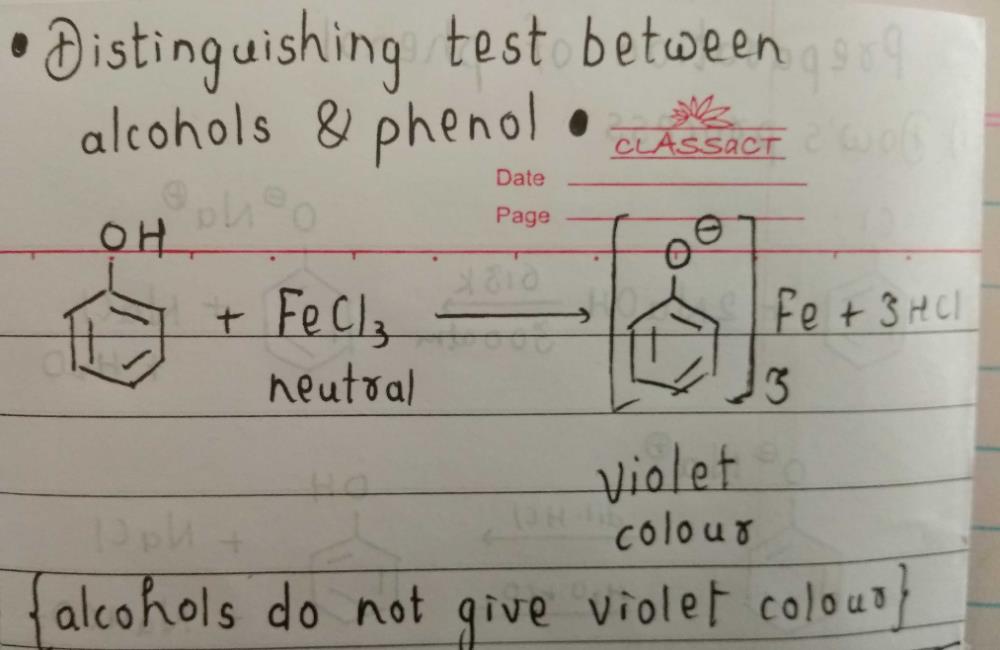 • Distinguishing test between
alcohols & phenol •
CLASSACT
Date
Page
OH
O⊖
+ FeCl₃ ⟶ [ ]₃ Fe + 3HCl
neutral
violet
colour
{alcohols do not give violet colour}